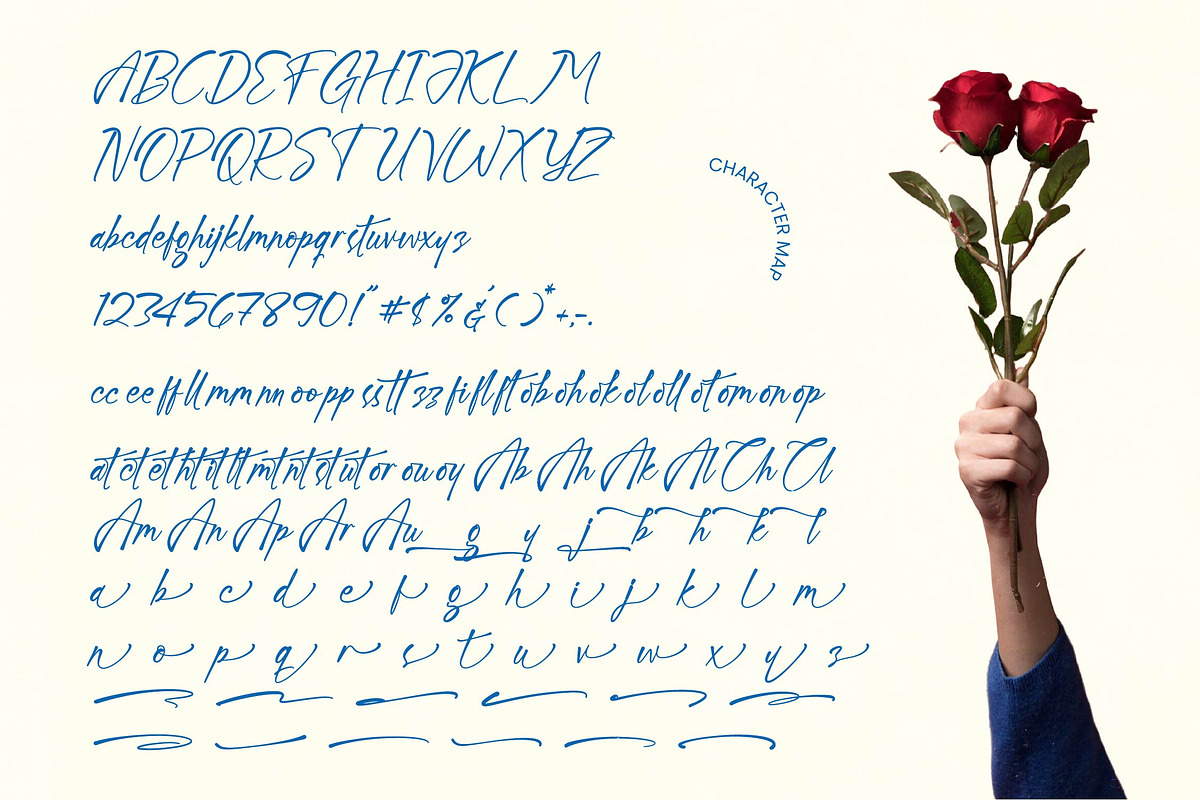 ABCDEFGHIJKLM
NOPQRSTUVWXYZ
CHARACTER MAP
abcdefghijklmnopqrstuvwxyz
1234567890!" #$%&'()*+,-.
cc ee ff ll mm nn oo pp ss tt zz fi fl ft ob oh ok ol oll ot om on op
at ct et ht it lt mt nt st ut or ou oy Ab Ah Ak Al Ch Cl
Am An Ap Ar Au g y j b h k l
a b c d e f g h i j k l m
n o p q r s t u v w x y z